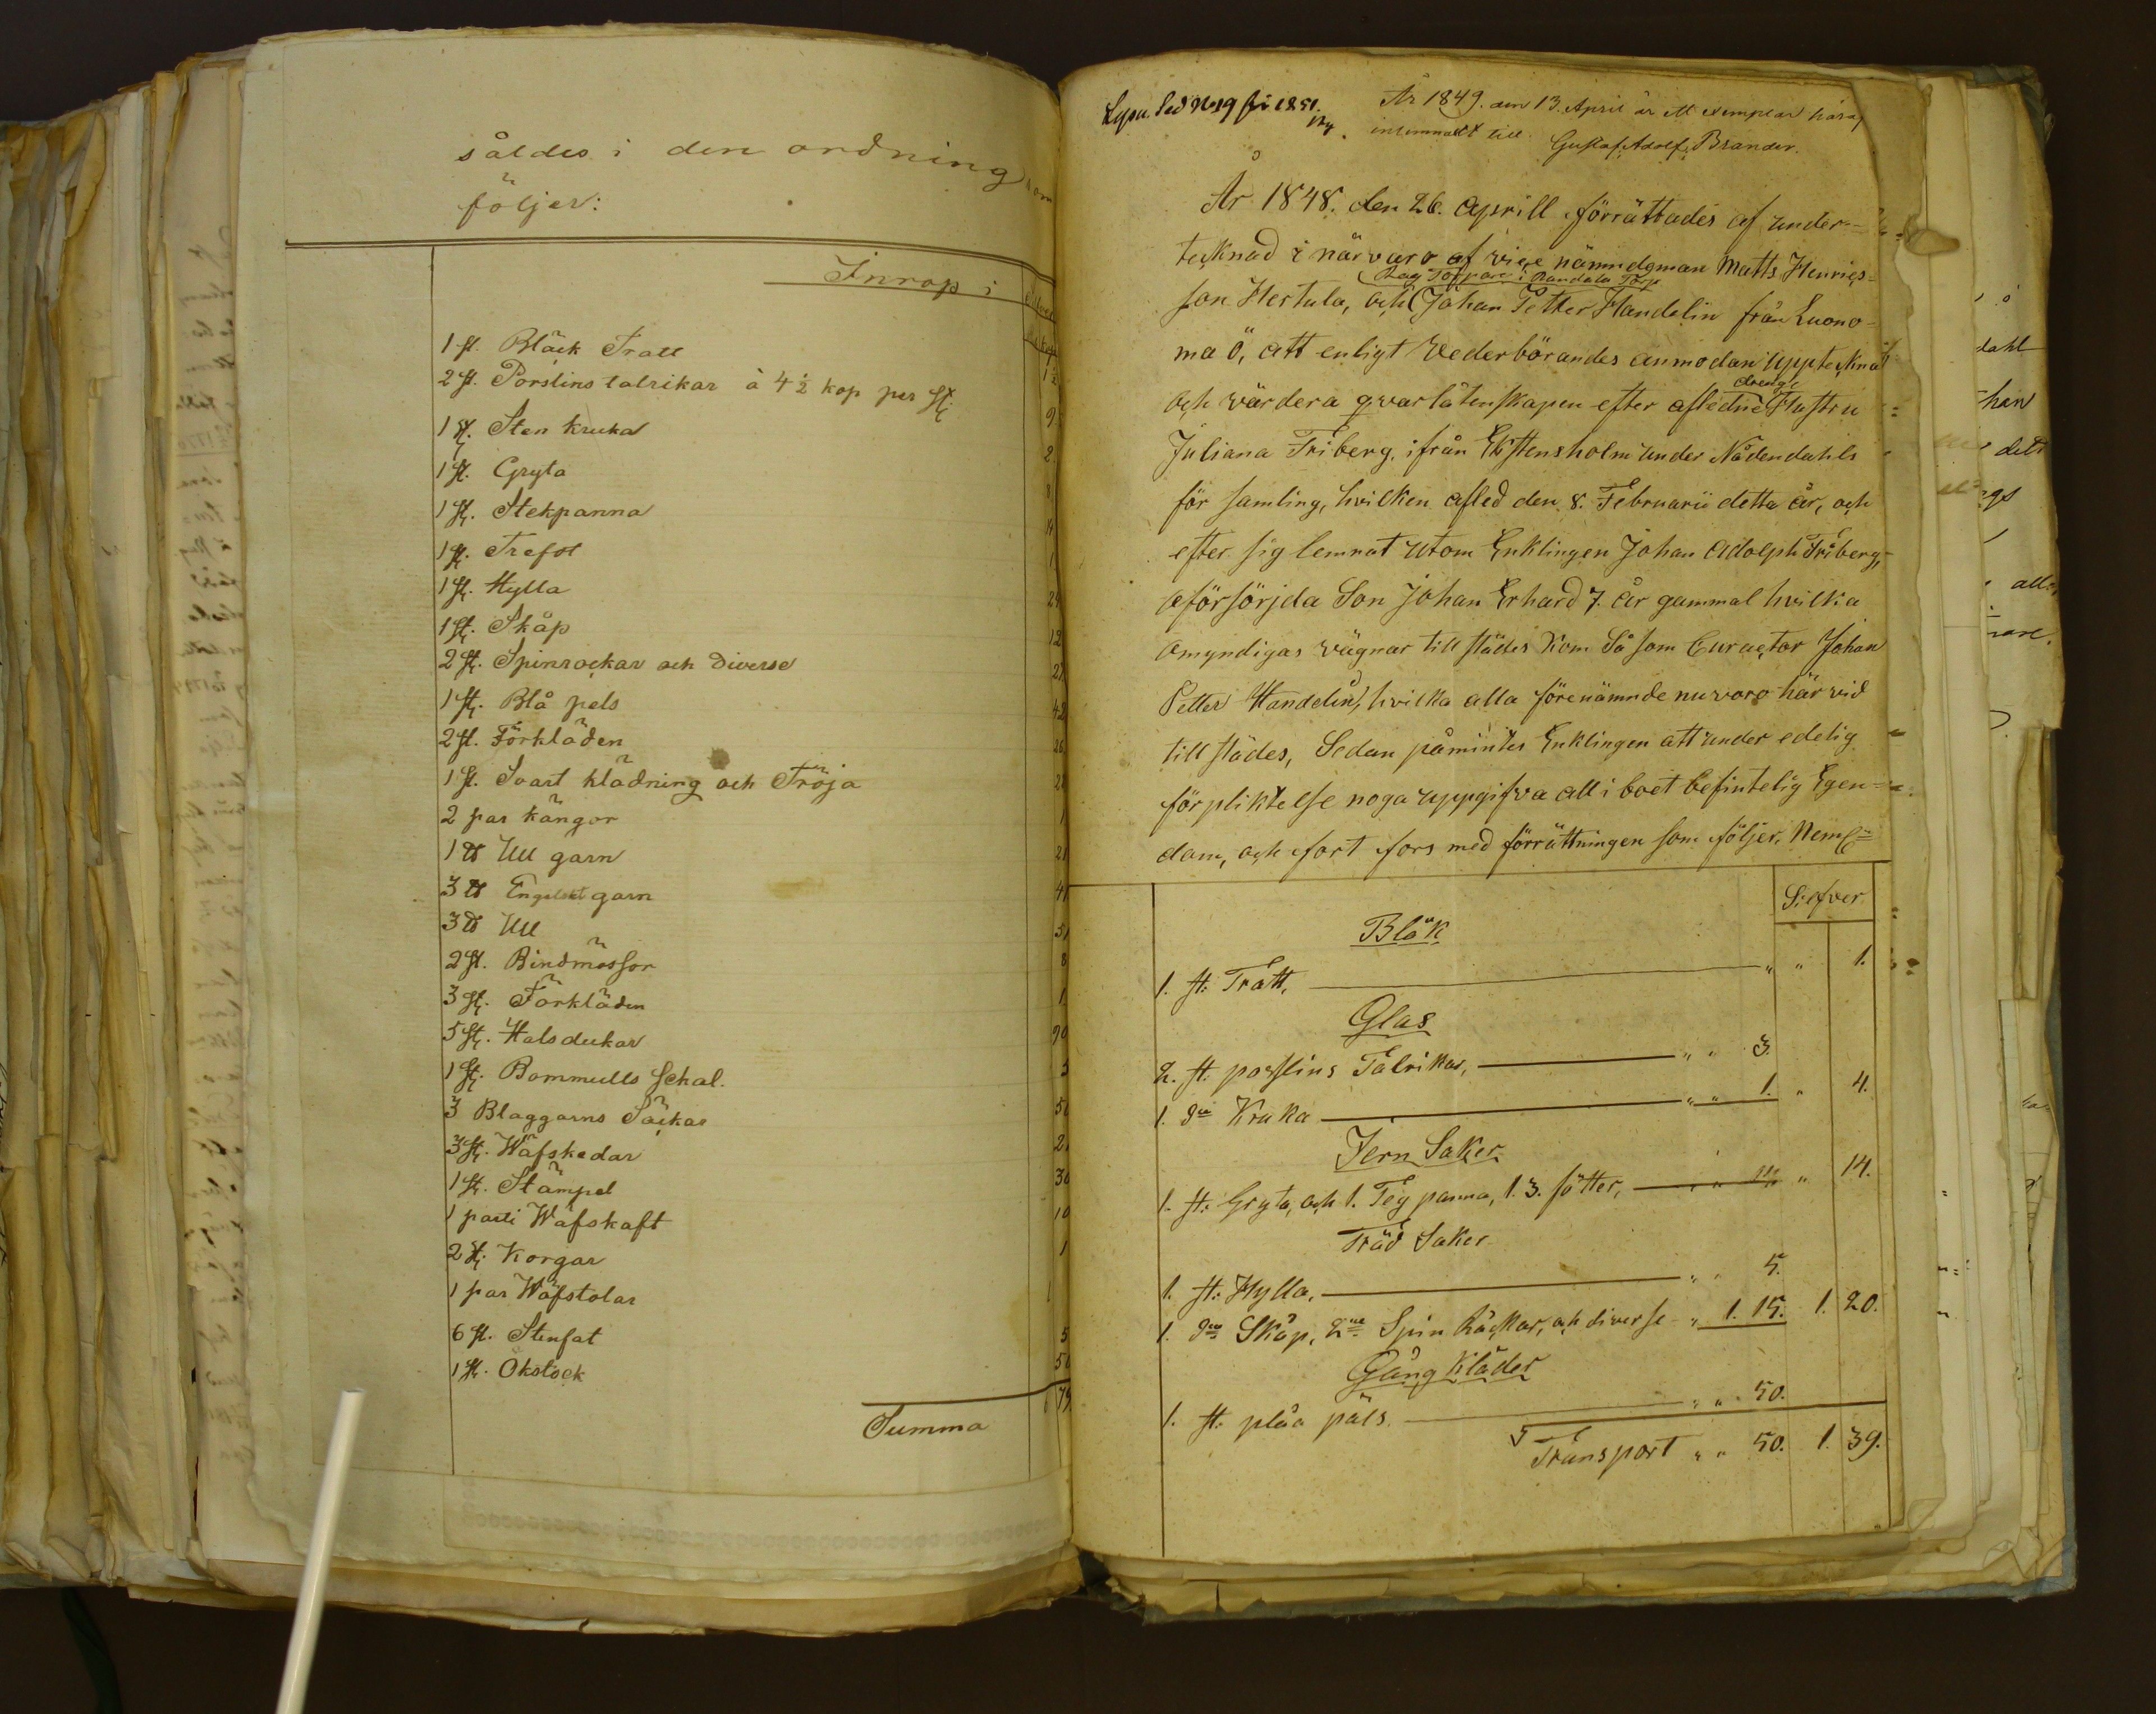 såldes i den ordning som
följer:
Inrop i
1 st. Bläck Tratt 1½
2 st. Porslins talrikar à 4½ kop per st. 9
1 st. Sten kruka 2
1 st. Gryta 8
1 st. Stekpanna
1 st. Trefot 1
1 st. Hylla 24
1 st. Skåp 12
2 st. Spinrockar och Diverse 27
1 st. Blå pels 42
2 st. Förkläden 26
1 st. Svart klädning och Tröja
2 par kängor 1
1 ℔ Ull garn 21
3 ℔ Engelskt garn 41
3 ℔ Ull 51
2 st. Bindmössor 8
3 st. Förkläden 1
5 st. Halsdukar 90
1 st. Bommulls schal.
3 Blaggarns Säckar 50
3 st. Wäfskedar 2
1 st. Stämpel 30
1 parti Wäfskaft 10
2 st. Korgar 1
1 par Wäfstolar
6 st. Stenfat 5
1 st. Ökstock 50
Summa
År 1849. den 13. April är ett exemplar häraf
inlemnadt till Gustaf Adolf Brander.
År 1848. den 26. Aprill förrättades af under-
tecknad i närvaro af vice nämndeman Matts Henrics-
son Hertula, och Johan Petter Handelin från Luono-
ma ö, att enligt Vederbörandes anmodan uppteckna
och värdera qvarlåtenskapen efter aflidne drengs Hustru
Juliana Friberg, ifrån Ekstensholm under Nådendahls
för samling, hvilken afled den 8. Februarii detta år, och
efter sig lemnat utom Enklingen Johan Adolph Friberg,
oförsörjda Son Johan Erhard 7. år gammal hvilka
omyndigas vägnar till städes kom Så som Curactor Johan
Petter Handelin, hvilka alla förenämnde nu voro här vid
till städes, Sedan påmintes Enklingen att under edelig
förpliktelse noga uppgifva all i boet befintelig Egen-
dom, och fort fors med förrättningen som följer, Neml:
Silfver
Bläk
1. st. Tratt, " " 1.
Glas
2. st. porslins Talrikar, " " 3.
1. d:o Kruka " " 1. " 4.
Jern Saker
1. st. Gryta, och 1. Teg panna, 1. 3. fötter, " 14.
Träd Saker
1. st. Hylla, " " 5.
1. d:o Skåp, 2:ne Spin Råckar, och diverse " 1. 15. 1. 20.
Gång Kläder
1. st. plåa päls " " 50.
Transport " " 50. 1. 39.